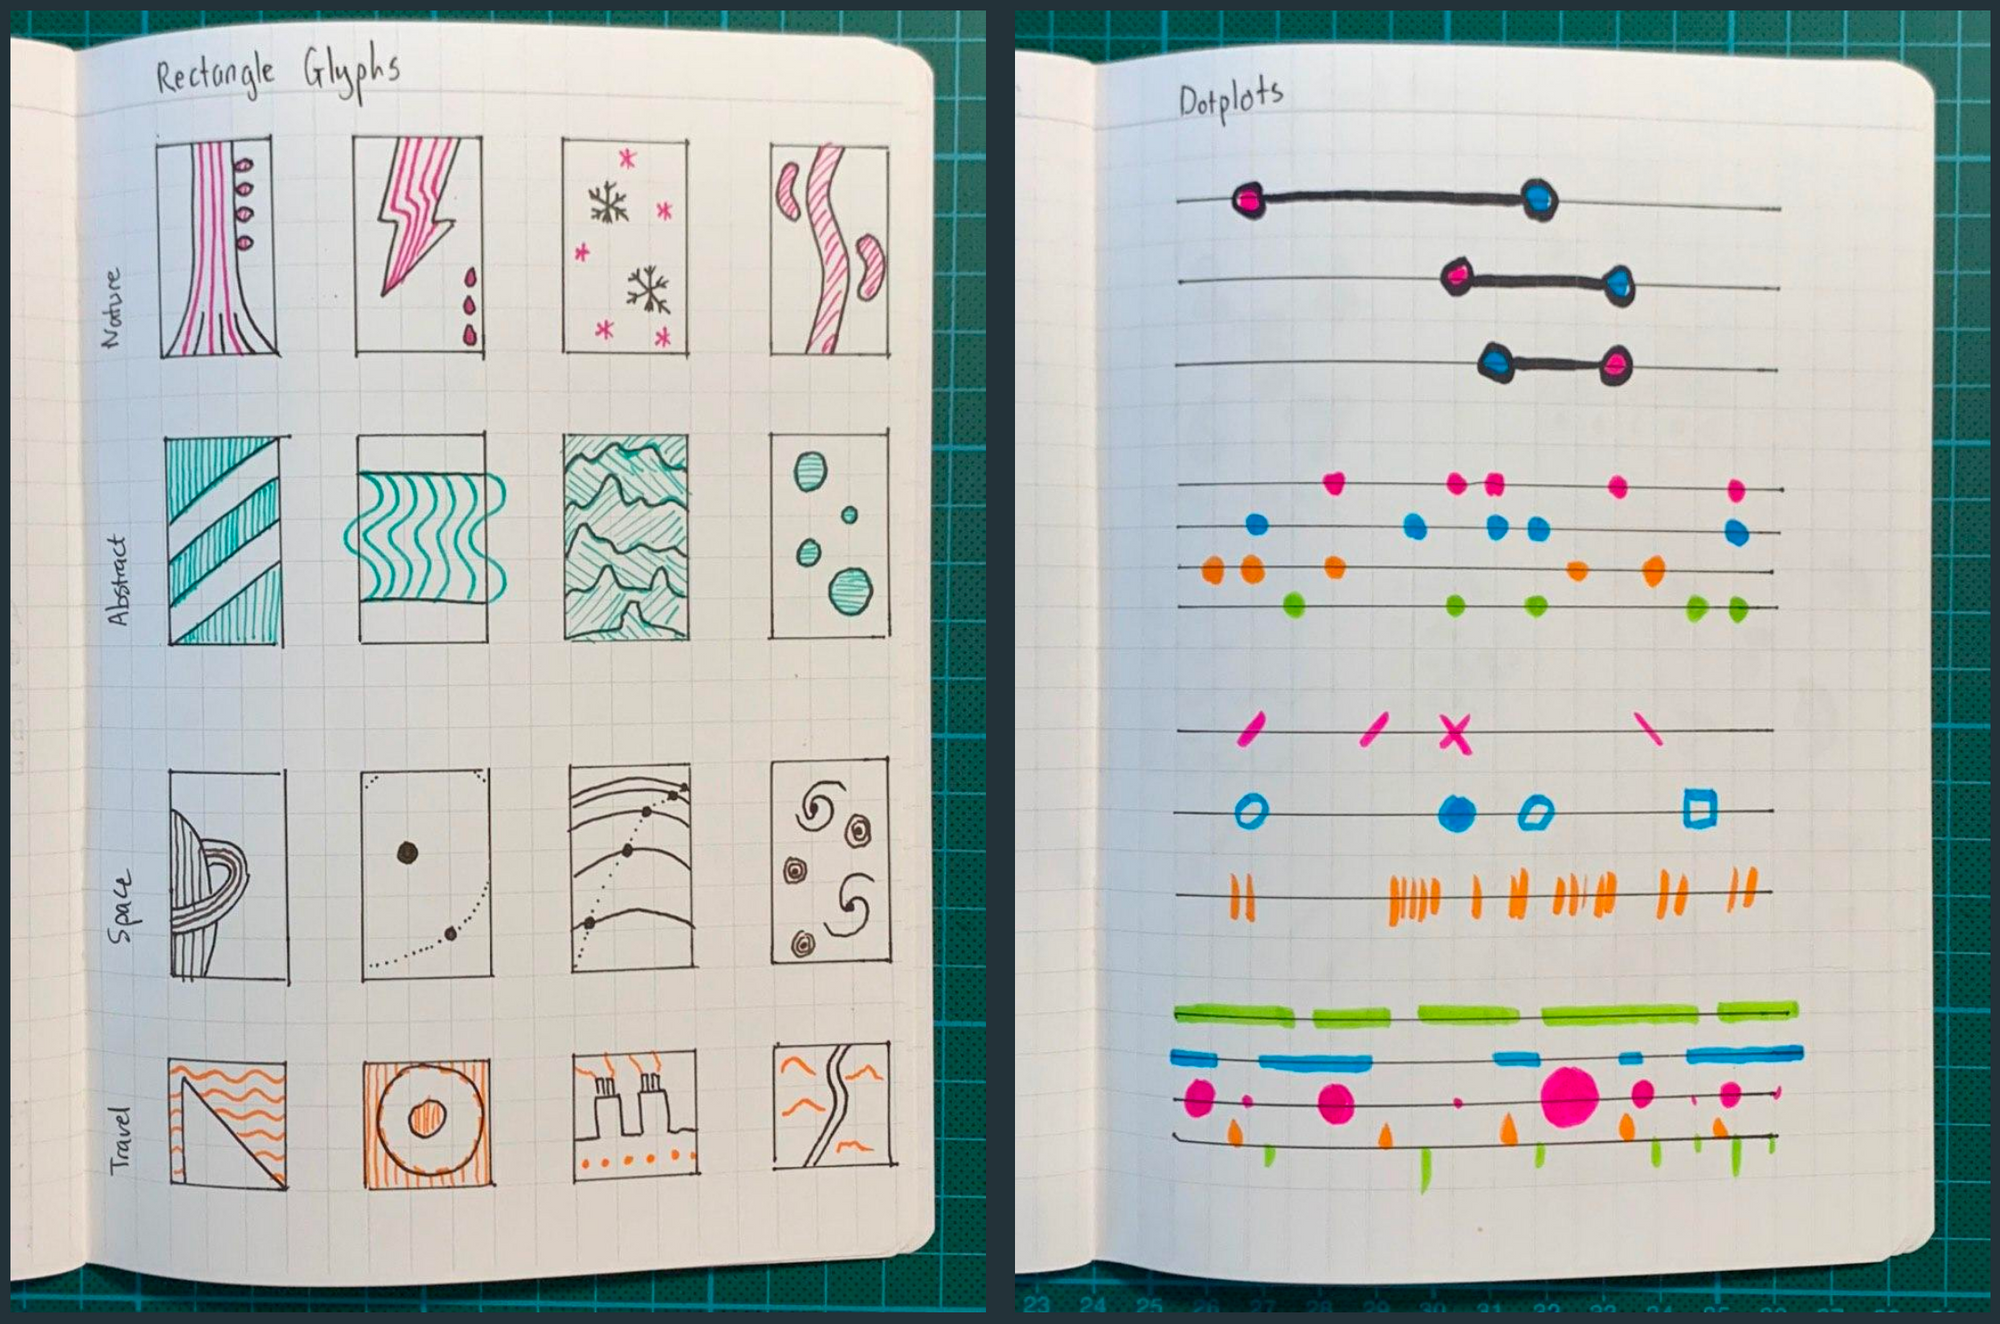 Rectangle Glyphs
Nature
Abstract
Space
Travel
Dotplots
23 24 25 26 27 28 29 30 31 32 33 34 35 36